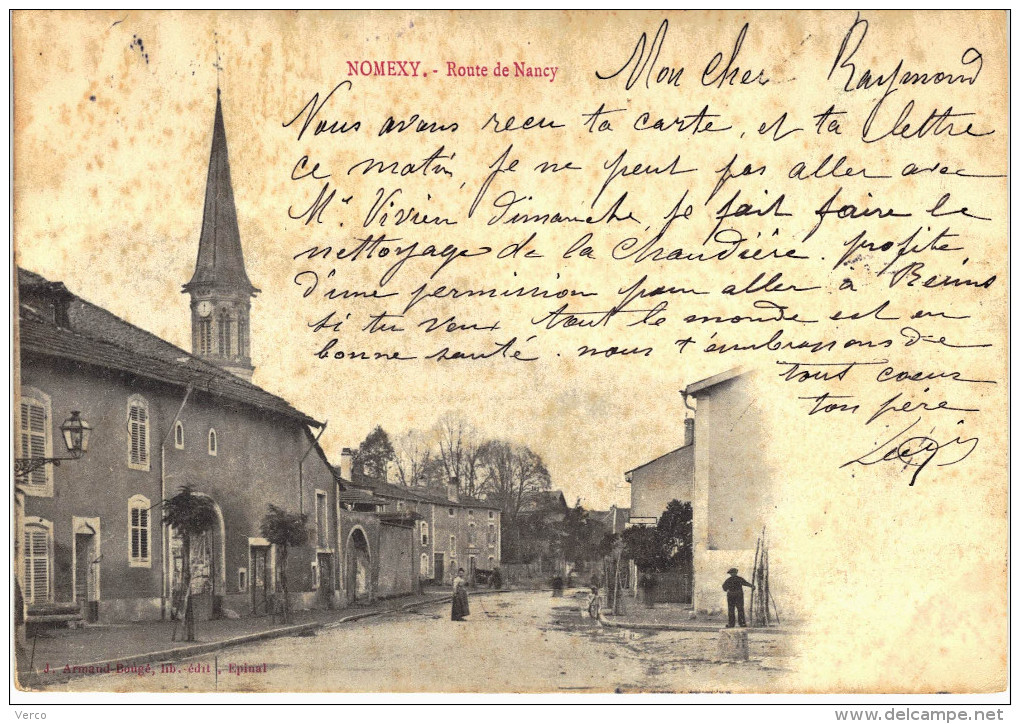 NOMEXY. - Route de Nancy
Mon Cher Raymond
Nous avons recu ta carte, et ta lettre
ce matin, je ne peut pas aller avec
Mr Vivien dimanche, je fait faire le
nettoyage de la Chaudière. profite
d'une permission pour aller à Reims
si tu veux tout le monde est en
bonne santé. nous t'embrassons de
tout coeur
ton père
J. Armand-Bougé, lib.-édit, Epinal
Verco
http://www.delcampe.net